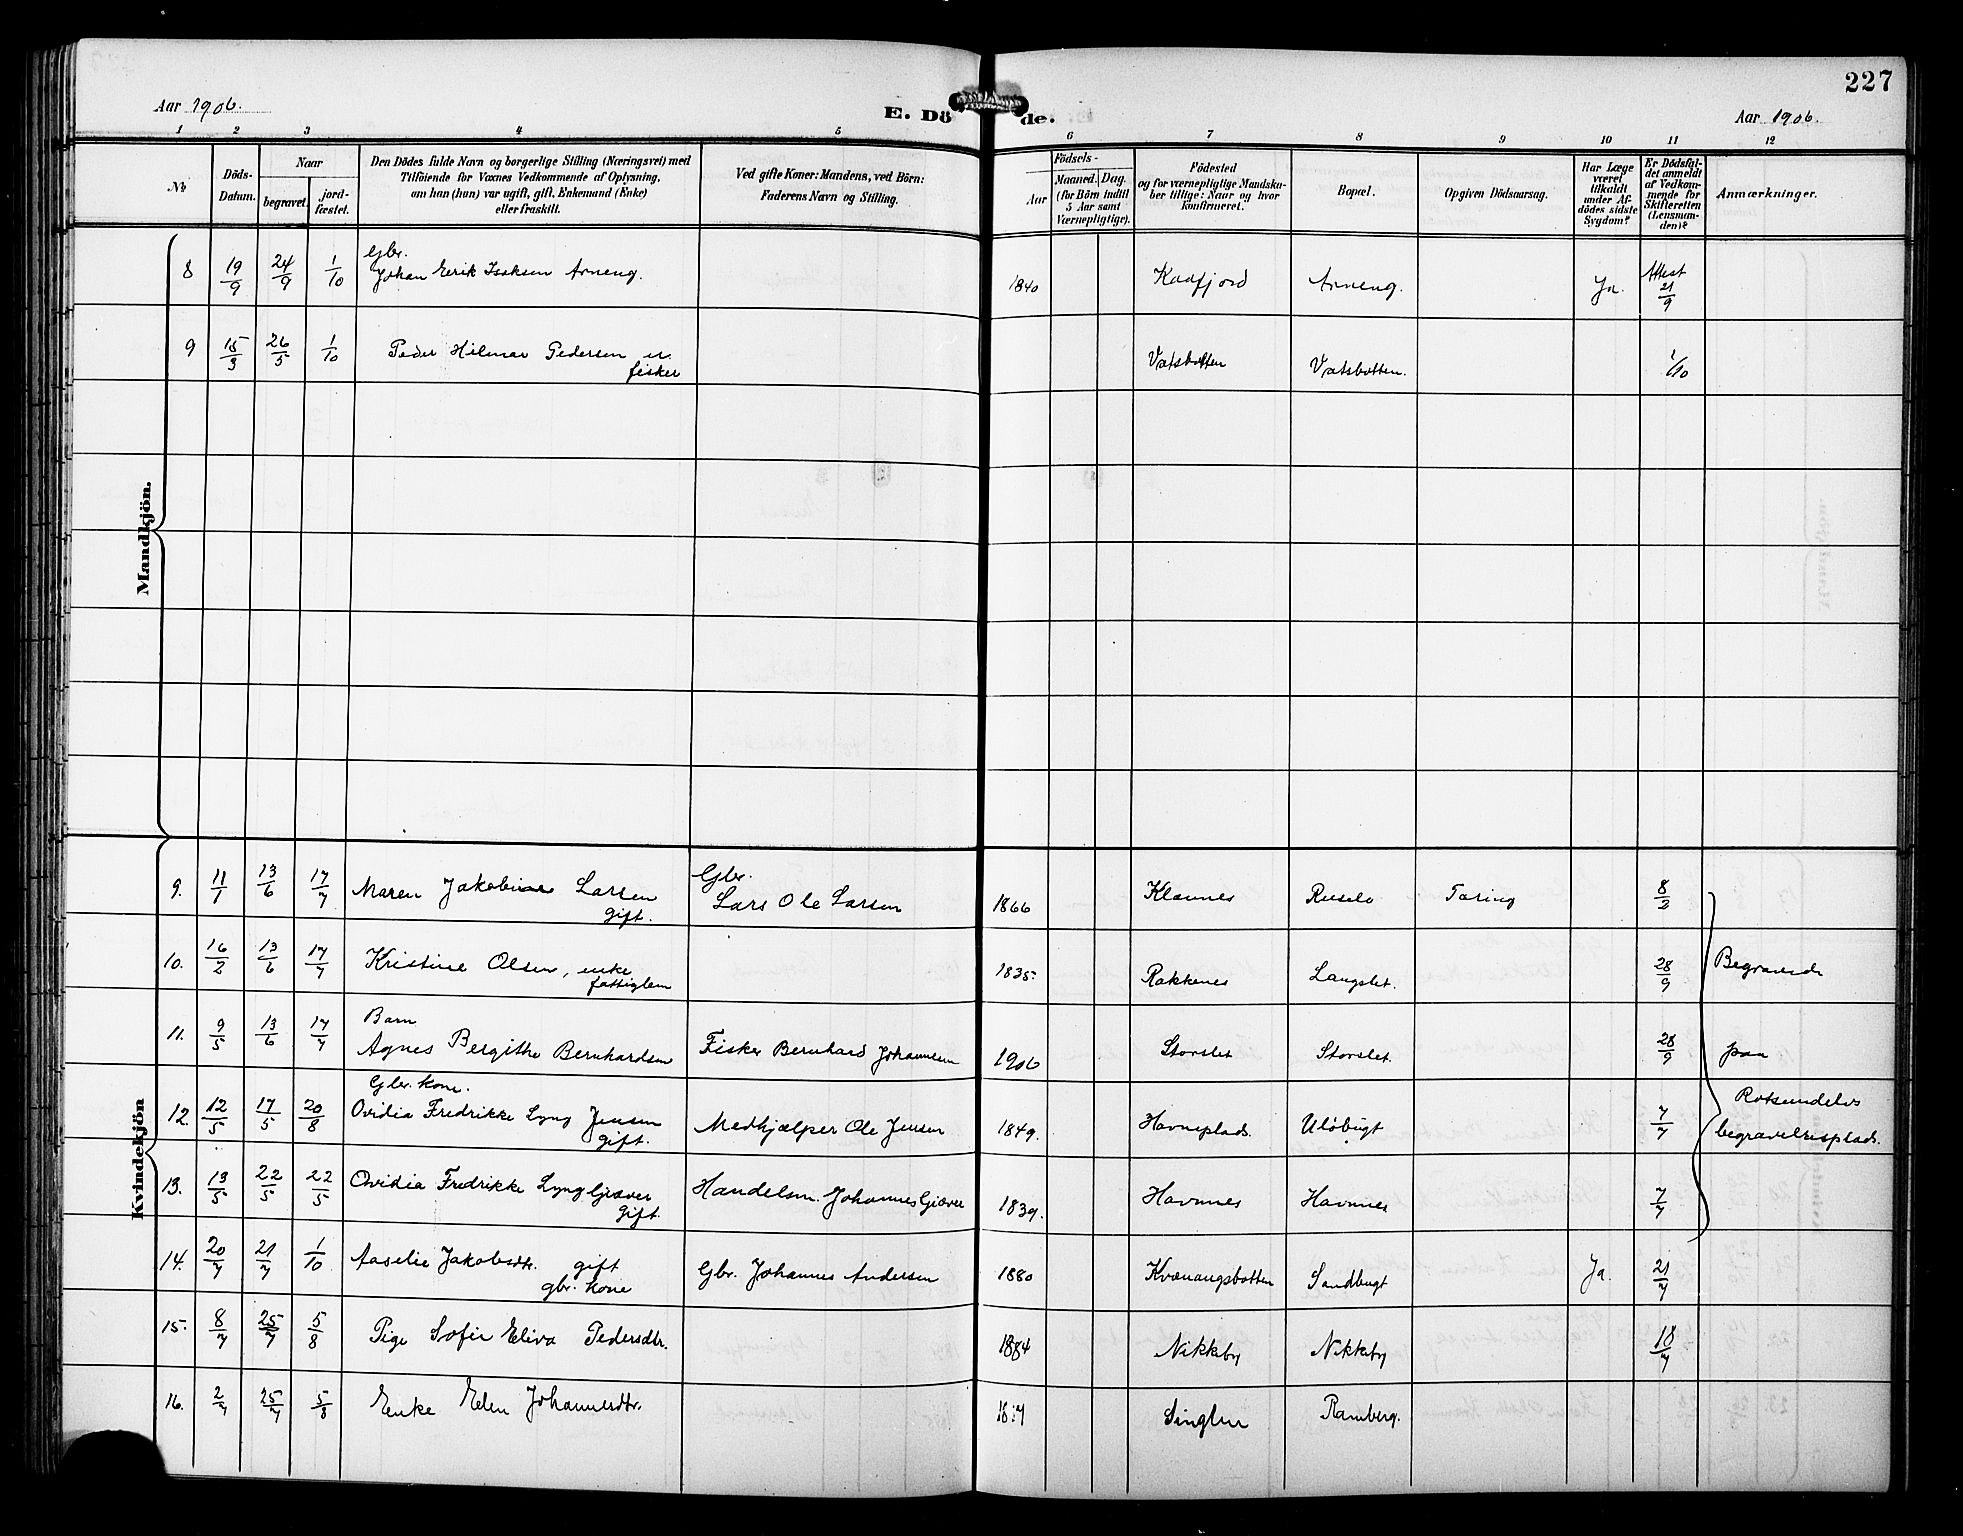 227
Aar 1906.
E. Dö de.
Aar 1906.
1 2 3 4 5 6 7 8 9 10 11 12
No
Döds-Datum.
Naar
begravet.
jord-fæstet.
Den Dödes fulde Navn og borgerlige Stilling (Næringsvei) med
Tilföiende for Voxnes Vedkommende af Oplysning,
om han (hun) var ugift, gift, Enkemand (Enke)
eller fraskilt.
Ved gifte Koner: Mandens, ved Börn:
Faderens Navn og Stilling.
Födsels-
Aar
Maaned. Dag.
(for Börn indtil
5 Aar samt
Værnepligtige).
Födested
og for værnepligtige Mandska-
ber tillige: Naar og hvor
konfirmeret.
Bopæl.
Opgiven Dödsaarsag.
Har Læge
været
tilkaldt
under Af-
dödes sidste
Sygdom?
Er Dödsfal-
det anmeldt
af Vedkom-
mende for
Skifteretten
(Lensman-
den)?
Anmærkninger.
Mandkjön.
8 19/9 24/9 1/10 Gbr. Johan Eerik Isaksen Arneng. 1840 Kaafjord Arneng. Ja. Attest 21/9
9 15/3 26/5 1/10 Peder Hilmar Pedersen u. fisker Vatsbotten Vatsbotten. 1/10
Kvindekjön
9. 11/1 13/6 17/7 Maren Jakobine Larsen gift. Gbr. Lars Ole Larsen 1866 Klaunes Ruselv Tæring 8/2
10. 16/2 13/6 17/7 Kristine Olsen, enke fattiglem 1835 Rakkenes Langslet. 28/9 Begravede
11. 9/5 13/6 17/7 Barn Agnes Bergithe Bernhardsen Fisker Bernhard Johannesen 1906 Storslet Storslet. 28/9 paa
12. 12/5 17/5 20/8 Gbr. kone. Ovidia Fredrikke Lyng Jensen gift. Medhjælper Ole Jensen 1849. Havneplads. Ulöbugt 7/7 Rotsundelvs begravelsesplads.
13. 13/5 22/5 22/5 Ovidia Fredrikke Lyng Giæver gift. Handelsm. Johannes Giæver 1839. Havnnes Havnnes 7/7
14. 20/7 21/7 1/10 Aaselie Jakobsdtr. gift gbr. kone Gbr. Johannes Andersen 1880 Kvænangsbotten Sandbugt Ja. 21/7
15. 8/7 25/7 5/8 Pige Sofie Eliva Pedersdtr. 1884 Nikkeby Nikkeby 18/7
16. 2/7 25/7 5/8 Enke Elen Johannesdtr. 1817 Ramberg.